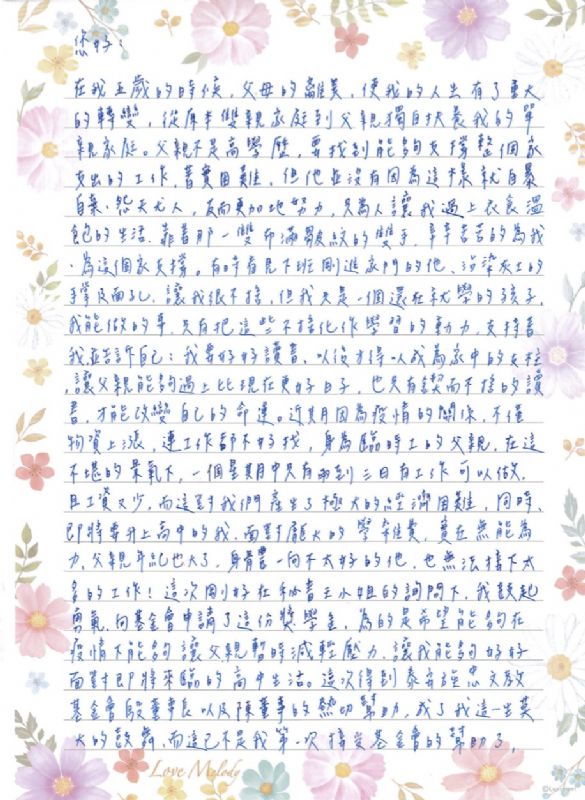 您好：
在我五歲的時候，父母的離異，使我的人生有了重大
的轉變，從原本雙親家庭到父親獨自扶養我的單
親家庭。父親不是高學歷，要找到能夠支撐整個家
支出的工作，著實困難，但他並沒有因為這樣就自暴
自棄、怨天尤人，反而更加地努力，只為人讓我過上衣食溫
飽的生活.靠著那一雙布滿皺紋的雙手，辛辛苦苦的為我
、為這個家支撐。有時看見下班剛進家門的他、沾染灰土的
手掌及面孔，讓我很不捨，但我只是一個還在就學的孩子，
我能做的事，只有把這些不捨化作學習的動力，支持著
我並告訴自己：我要好好讀書，以後才得以成為家中的支柱
，讓父親能夠過上比現在更好日子，也只有鍥而不捨的讀
書，才能改變自己的命運。近期因為疫情的關係，不僅
物資上漲，連工作都不好找，身為臨時工的父親，在這
不堪的景氣下，一個星期中只有兩到三日有工作可以做，
且工資又少，而這對我們產生了極大的經濟困難，同時、
即將要升上高中的我，面對龐大的學雜費，實在無能為
力，父親年紀也大了，身體一向不太好的他，也無法接下太
多的工作！這次剛好在秘書王小姐的詢問下，我鼓起
勇氣，向基金會申請了這份獎學金，為的是希望能夠在
疫情下能夠讓父親暫時減輕壓力，讓我能夠好好
面對即將來臨的高中生活。這次得到泰安旌忠文教
基金會殷董事長以及陳董事的熱切幫助，成了我這一生莫
大的鼓舞，而這已不是我第一次接受基金會的幫助了，
Love Melody